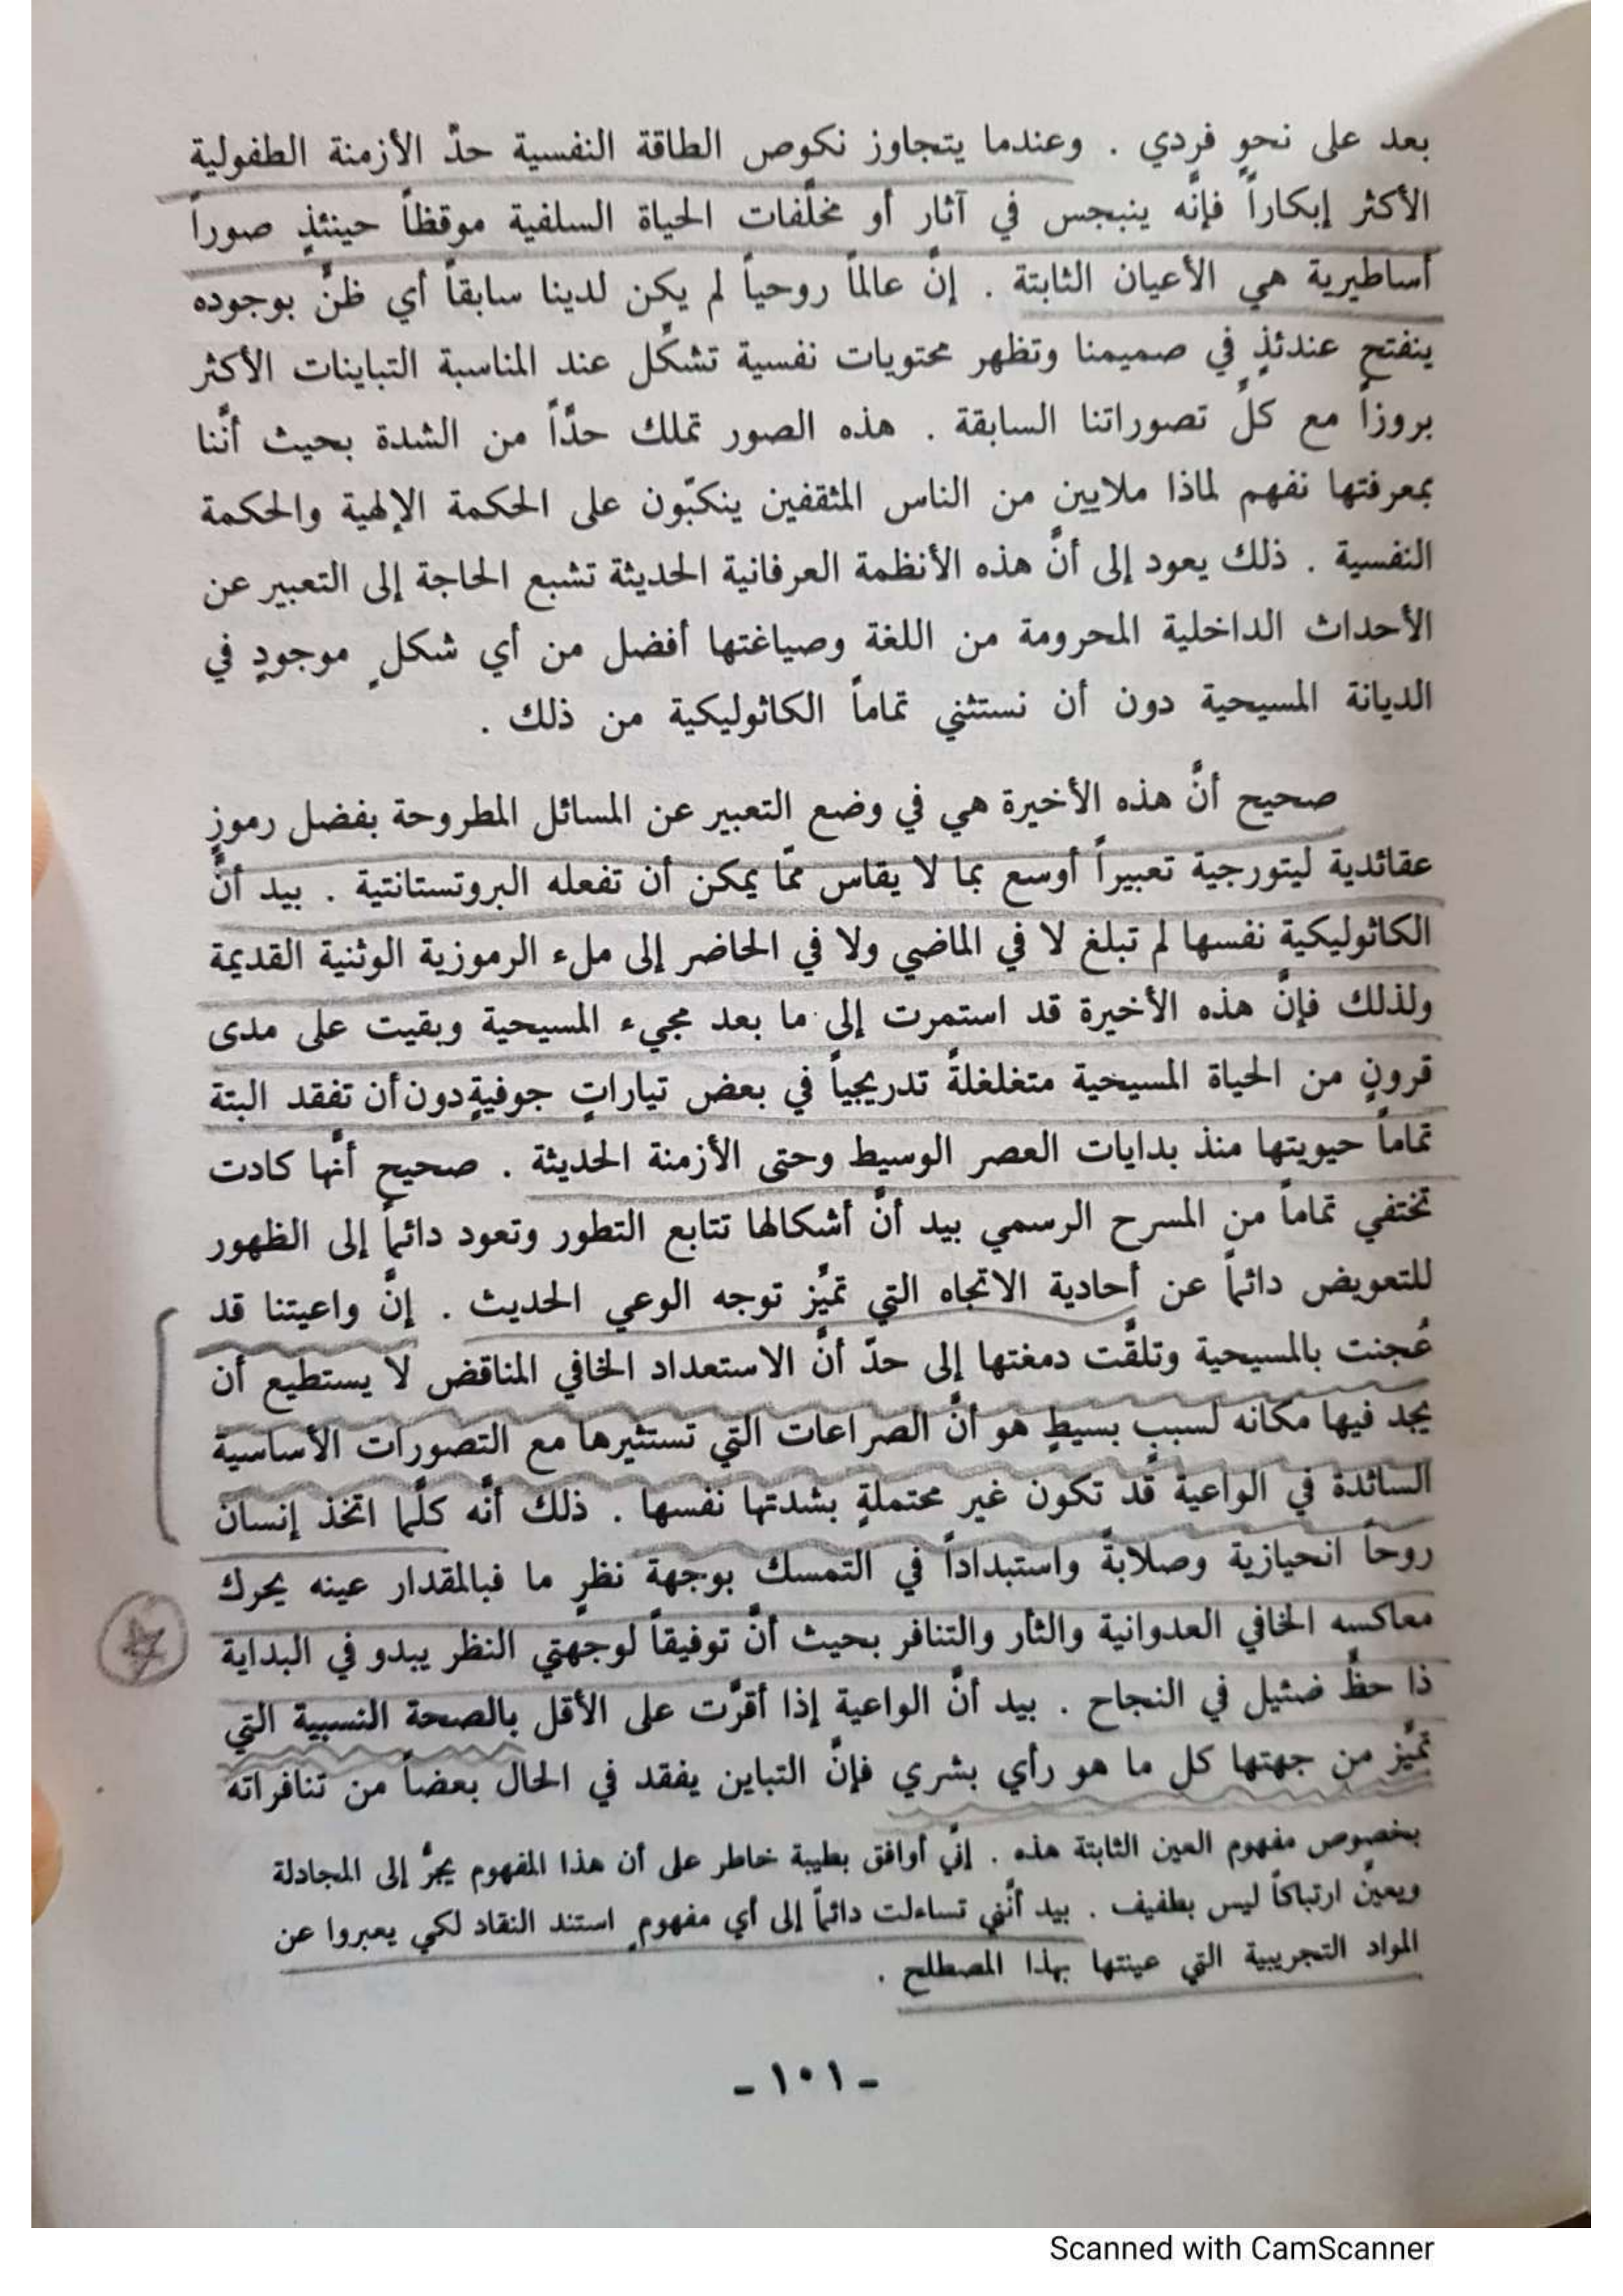 بعد على نحوٍ فردي . وعندما يتجاوز نكوص الطاقة النفسية حدّ الأزمنة الطفولية
الأكثر إبكاراً فإنَّه ينبجس في آثار أو مخلَّفات الحياة السلفية موقظاً حينئذٍ صوراً
أساطيرية هي الأعيان الثابتة . إنَّ عالماً روحياً لم يكن لدينا سابقاً أي ظنٍّ بوجوده
ينفتح عندئذٍ في صميمنا وتظهر محتويات نفسية تشكِّل عند المناسبة التباينات الأكثر
بروزاً مع كلِّ تصوراتنا السابقة . هذه الصور تملك حدَّاً من الشدة بحيث أنَّنا
بمعرفتها نفهم لماذا ملايين من الناس المثقفين ينكبّون على الحكمة الإلهية والحكمة
النفسية . ذلك يعود إلى أنَّ هذه الأنظمة العرفانية الحديثة تشبع الحاجة إلى التعبير عن
الأحداث الداخلية المحرومة من اللغة وصياغتها أفضل من أي شكلٍ موجودٍ في
الديانة المسيحية دون أن نستثني تماماً الكاثوليكية من ذلك .
صحيح أنَّ هذه الأخيرة هي في وضع التعبير عن المسائل المطروحة بفضل رموزٍ
عقائدية ليتورجية تعبيراً أوسع بما لا يقاس ممّا يمكن أن تفعله البروتستانتية . بيد أنَّ
الكاثوليكية نفسها لم تبلغ لا في الماضي ولا في الحاضر إلى ملء الرموزية الوثنية القديمة
ولذلك فإنَّ هذه الأخيرة قد استمرت إلى ما بعد مجيء المسيحية وبقيت على مدى
قرونٍ من الحياة المسيحية متغلغلةً تدريجياً في بعض تياراتٍ جوفيةٍ دون أن تفقد البتة
تماماً حيويتها منذ بدايات العصر الوسيط وحتى الأزمنة الحديثة . صحيح أنَّها كادت
تختفي تماماً من المسرح الرسمي بيد أنَّ أشكالها تتابع التطور وتعود دائماً إلى الظهور
للتعويض دائماً عن أحادية الاتجاه التي تميِّز توجه الوعي الحديث . إنَّ واعيتنا قد
عُجنت بالمسيحية وتلقَّت دمغتها إلى حدّ أنَّ الاستعداد الخافي المناقض لا يستطيع أن
يجد فيها مكانه لسببٍ بسيطٍ هو أنَّ الصراعات التي تستثيرها مع التصورات الأساسية
السائدة في الواعية قد تكون غير محتملةٍ بشدتها نفسها . ذلك أنَّه كلَّما اتخذ إنسان
روحاً انحيازية وصلابةً واستبداداً في التمسك بوجهة نظرٍ ما فبالمقدار عينه يحرك
معاكسه الخافي العدوانية والثأر والتنافر بحيث أنَّ توفيقاً لوجهتي النظر يبدو في البداية
ذا حظٍّ ضئيل في النجاح . بيد أنَّ الواعية إذا أقرَّت على الأقل بالصحة النسبية التي
تميِّز من جهتها كل ما هو رأي بشري فإنَّ التباين يفقد في الحال بعضاً من تنافراته
بخصوص مفهوم العين الثابتة هذه . إنّي أوافق بطيبة خاطر على أن هذا المفهوم يجرُّ إلى المجادلة
ويعيّن ارتباكاً ليس بطفيف . بيد أنَّني تساءلت دائماً إلى أي مفهومٍ استند النقاد لكي يعبروا عن
المواد التجريبية التي عينتها بهذا المصطلح .
ـ ١٠١ ـ
Scanned with CamScanner